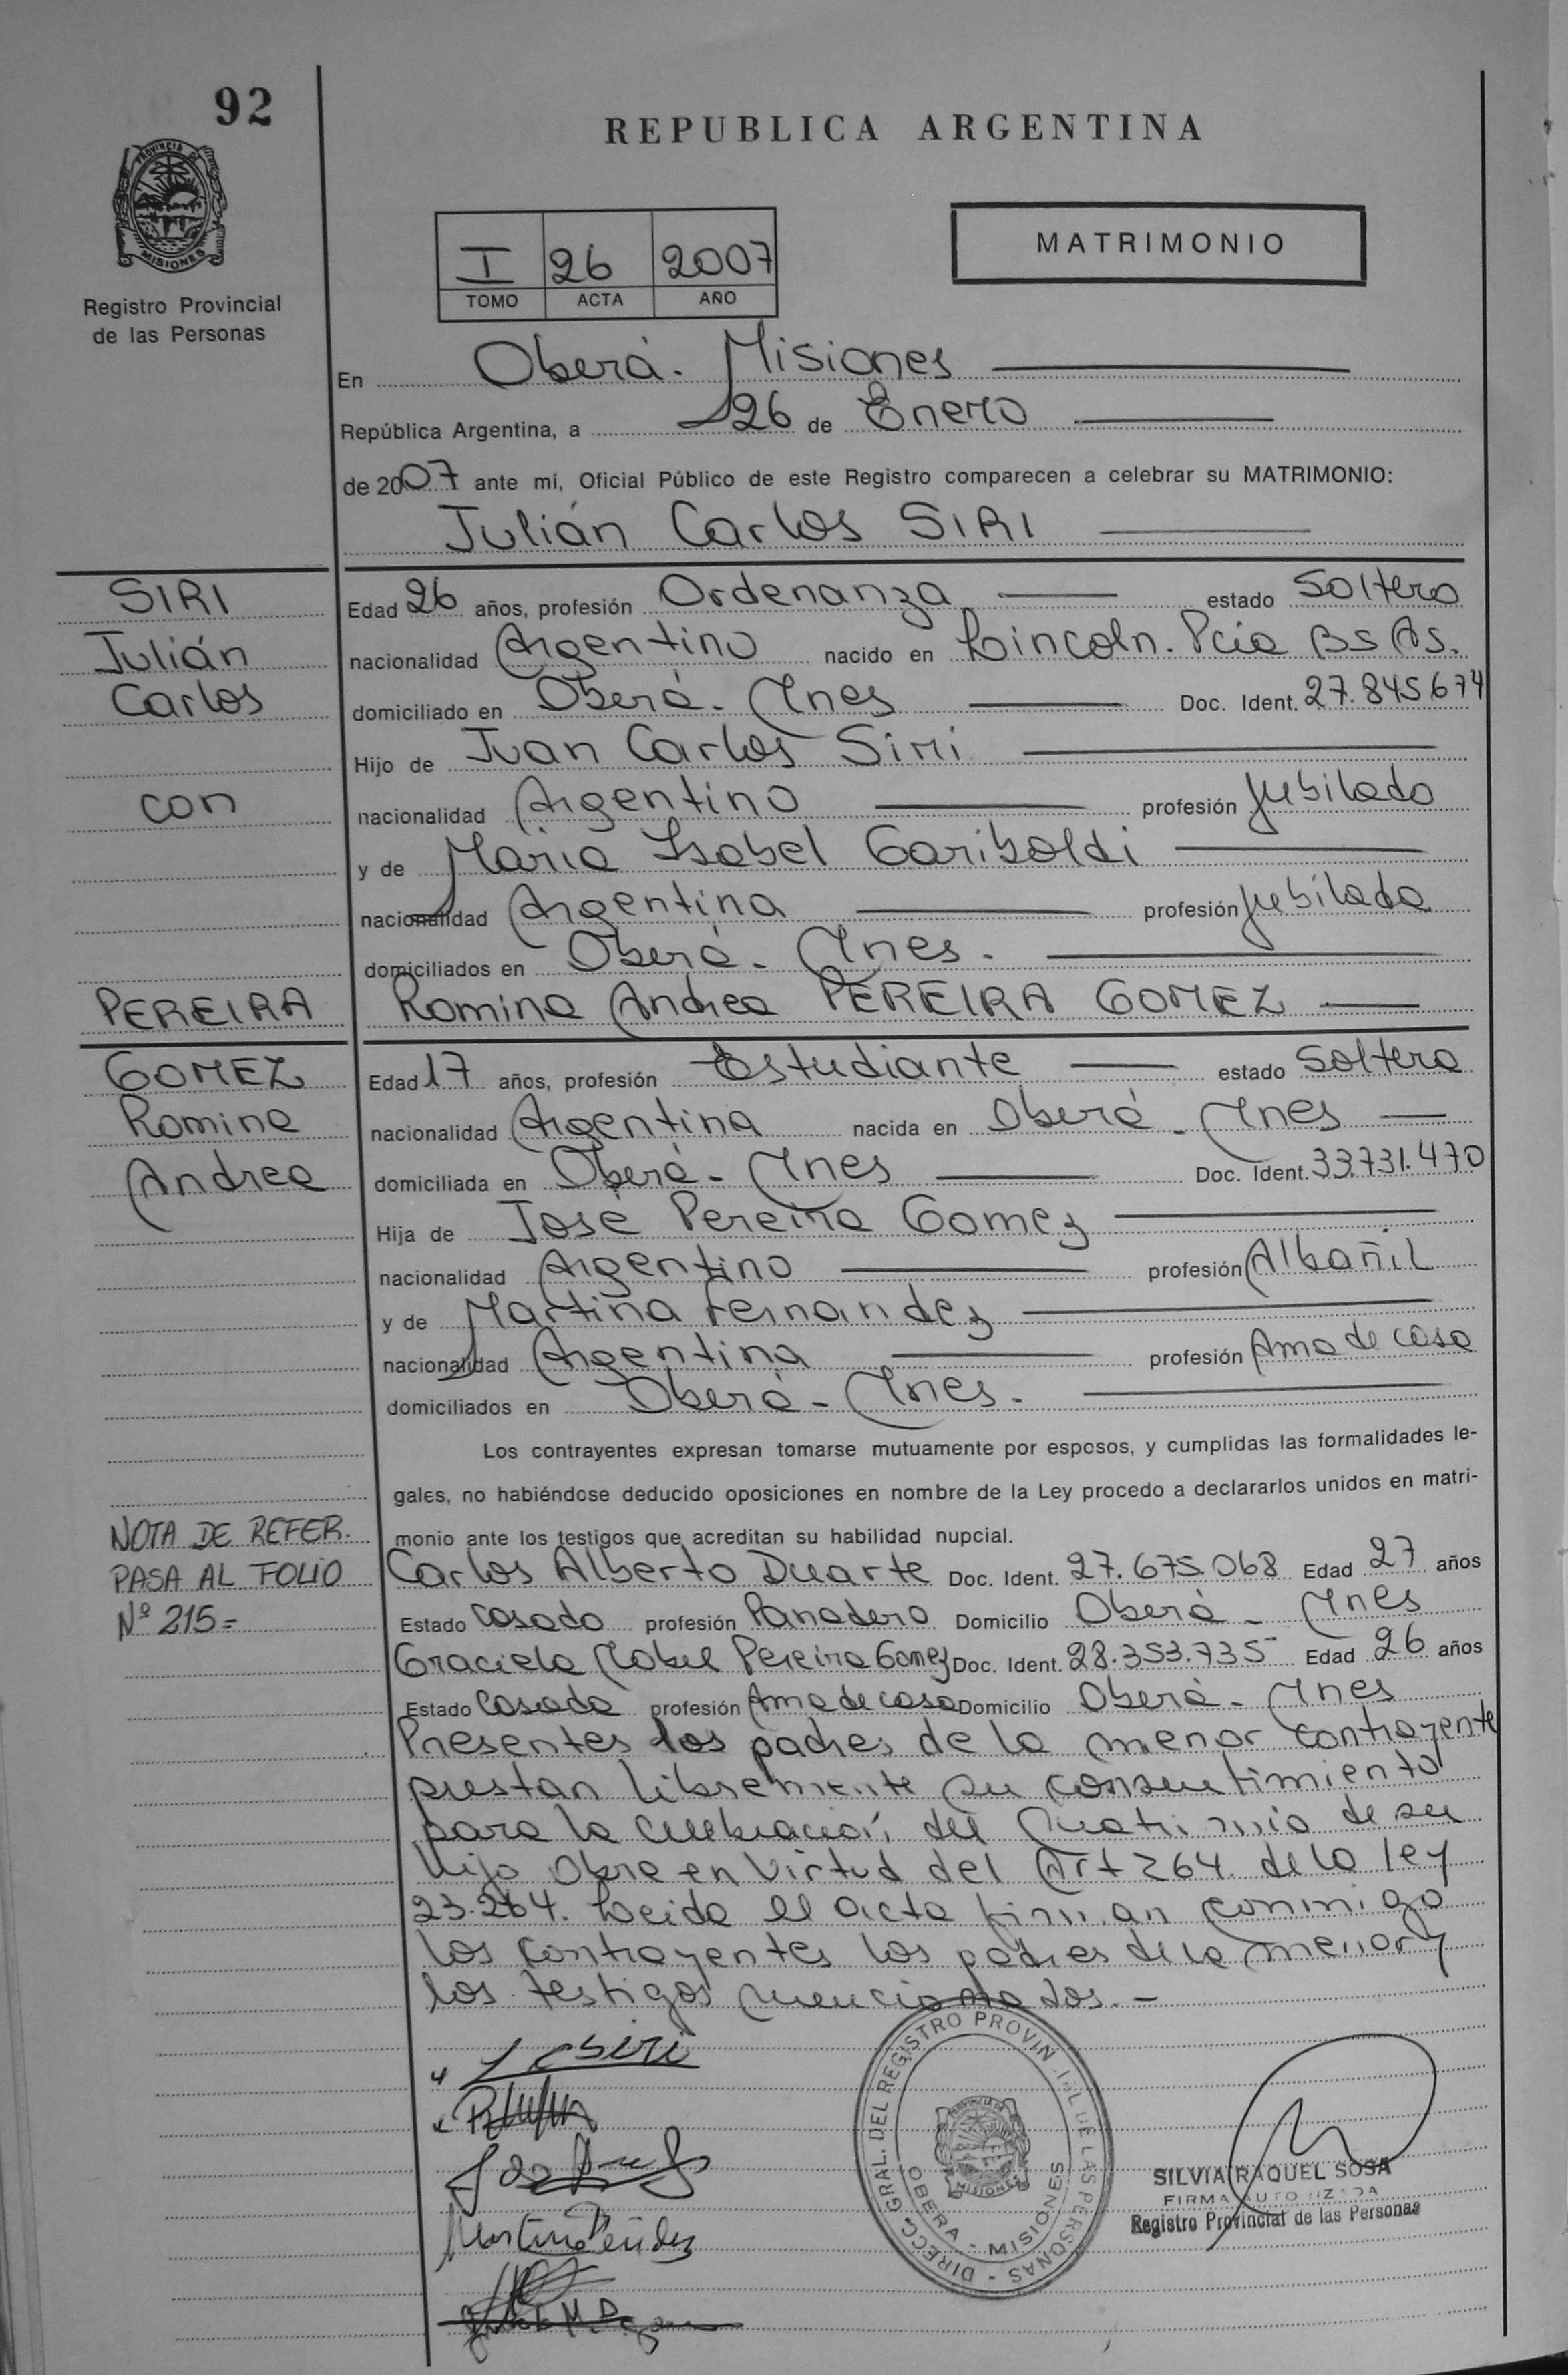 92
REPUBLICA ARGENTINA
PROVINCIA DE
MISIONES
Registro Provincial
de las Personas
I 26 2007
TOMO ACTA AÑO
MATRIMONIO
En Oberá. Misiones
República Argentina, a 26 de Enero
de 2007 ante mí, Oficial Público de este Registro comparecen a celebrar su MATRIMONIO:
Julián Carlos SIRI
SIRI
Julián
Carlos
con
PEREIRA
GOMEZ
Romina
Andrea
Edad 26 años, profesión Ordenanza estado Soltero
nacionalidad Argentino nacido en Lincoln. Pcia Bs As.
domiciliado en Oberá - Mnes Doc. Ident. 27.845.674
Hijo de Juan Carlos Siri
nacionalidad Argentino profesión Jubilado
y de Maria Isabel Gariboldi
nacionalidad Argentina profesión Jubilada
domiciliados en Oberá - Mnes.
Romina Andrea PEREIRA GOMEZ
Edad 17 años, profesión Estudiante estado Soltera
nacionalidad Argentina nacida en Oberá - Mnes
domiciliada en Oberá - Mnes Doc. Ident. 33.731.470
Hija de José Pereira Gomez
nacionalidad Argentino profesión Albañil
y de Martina Fernandez
nacionalidad Argentina profesión Ama de casa
domiciliados en Oberá - Mnes.
Los contrayentes expresan tomarse mutuamente por esposos, y cumplidas las formalidades le-
gales, no habiéndose deducido oposiciones en nombre de la Ley procedo a declararlos unidos en matri-
monio ante los testigos que acreditan su habilidad nupcial.
NOTA DE REFER.
PASA AL FOLIO
Nº 215=
Carlos Alberto Duarte Doc. Ident. 27.675.068 Edad 27 años
Estado Casado profesión Panadero Domicilio Oberá - Mnes
Graciela Mabel Pereira Gomez Doc. Ident. 28.353.735 Edad 26 años
Estado Casada profesión Ama de casa Domicilio Oberá - Mnes
Presentes los padres de la menor contrayente
prestan libremente su consentimiento
para la celebración del de su
hija Obre en virtud del Art 264 de la ley
23.264. Leida el acta firman conmigo
los contrayentes los padres de la menor y
los testigos mencionados.-
DIRECC. GRAL. DEL REGISTRO PROVINCIAL DE LAS PERSONAS
OBERA - MISIONES
SILVIA RAQUEL SOSA
FIRMA AUTORIZADA
Registro Provincial de las Personas